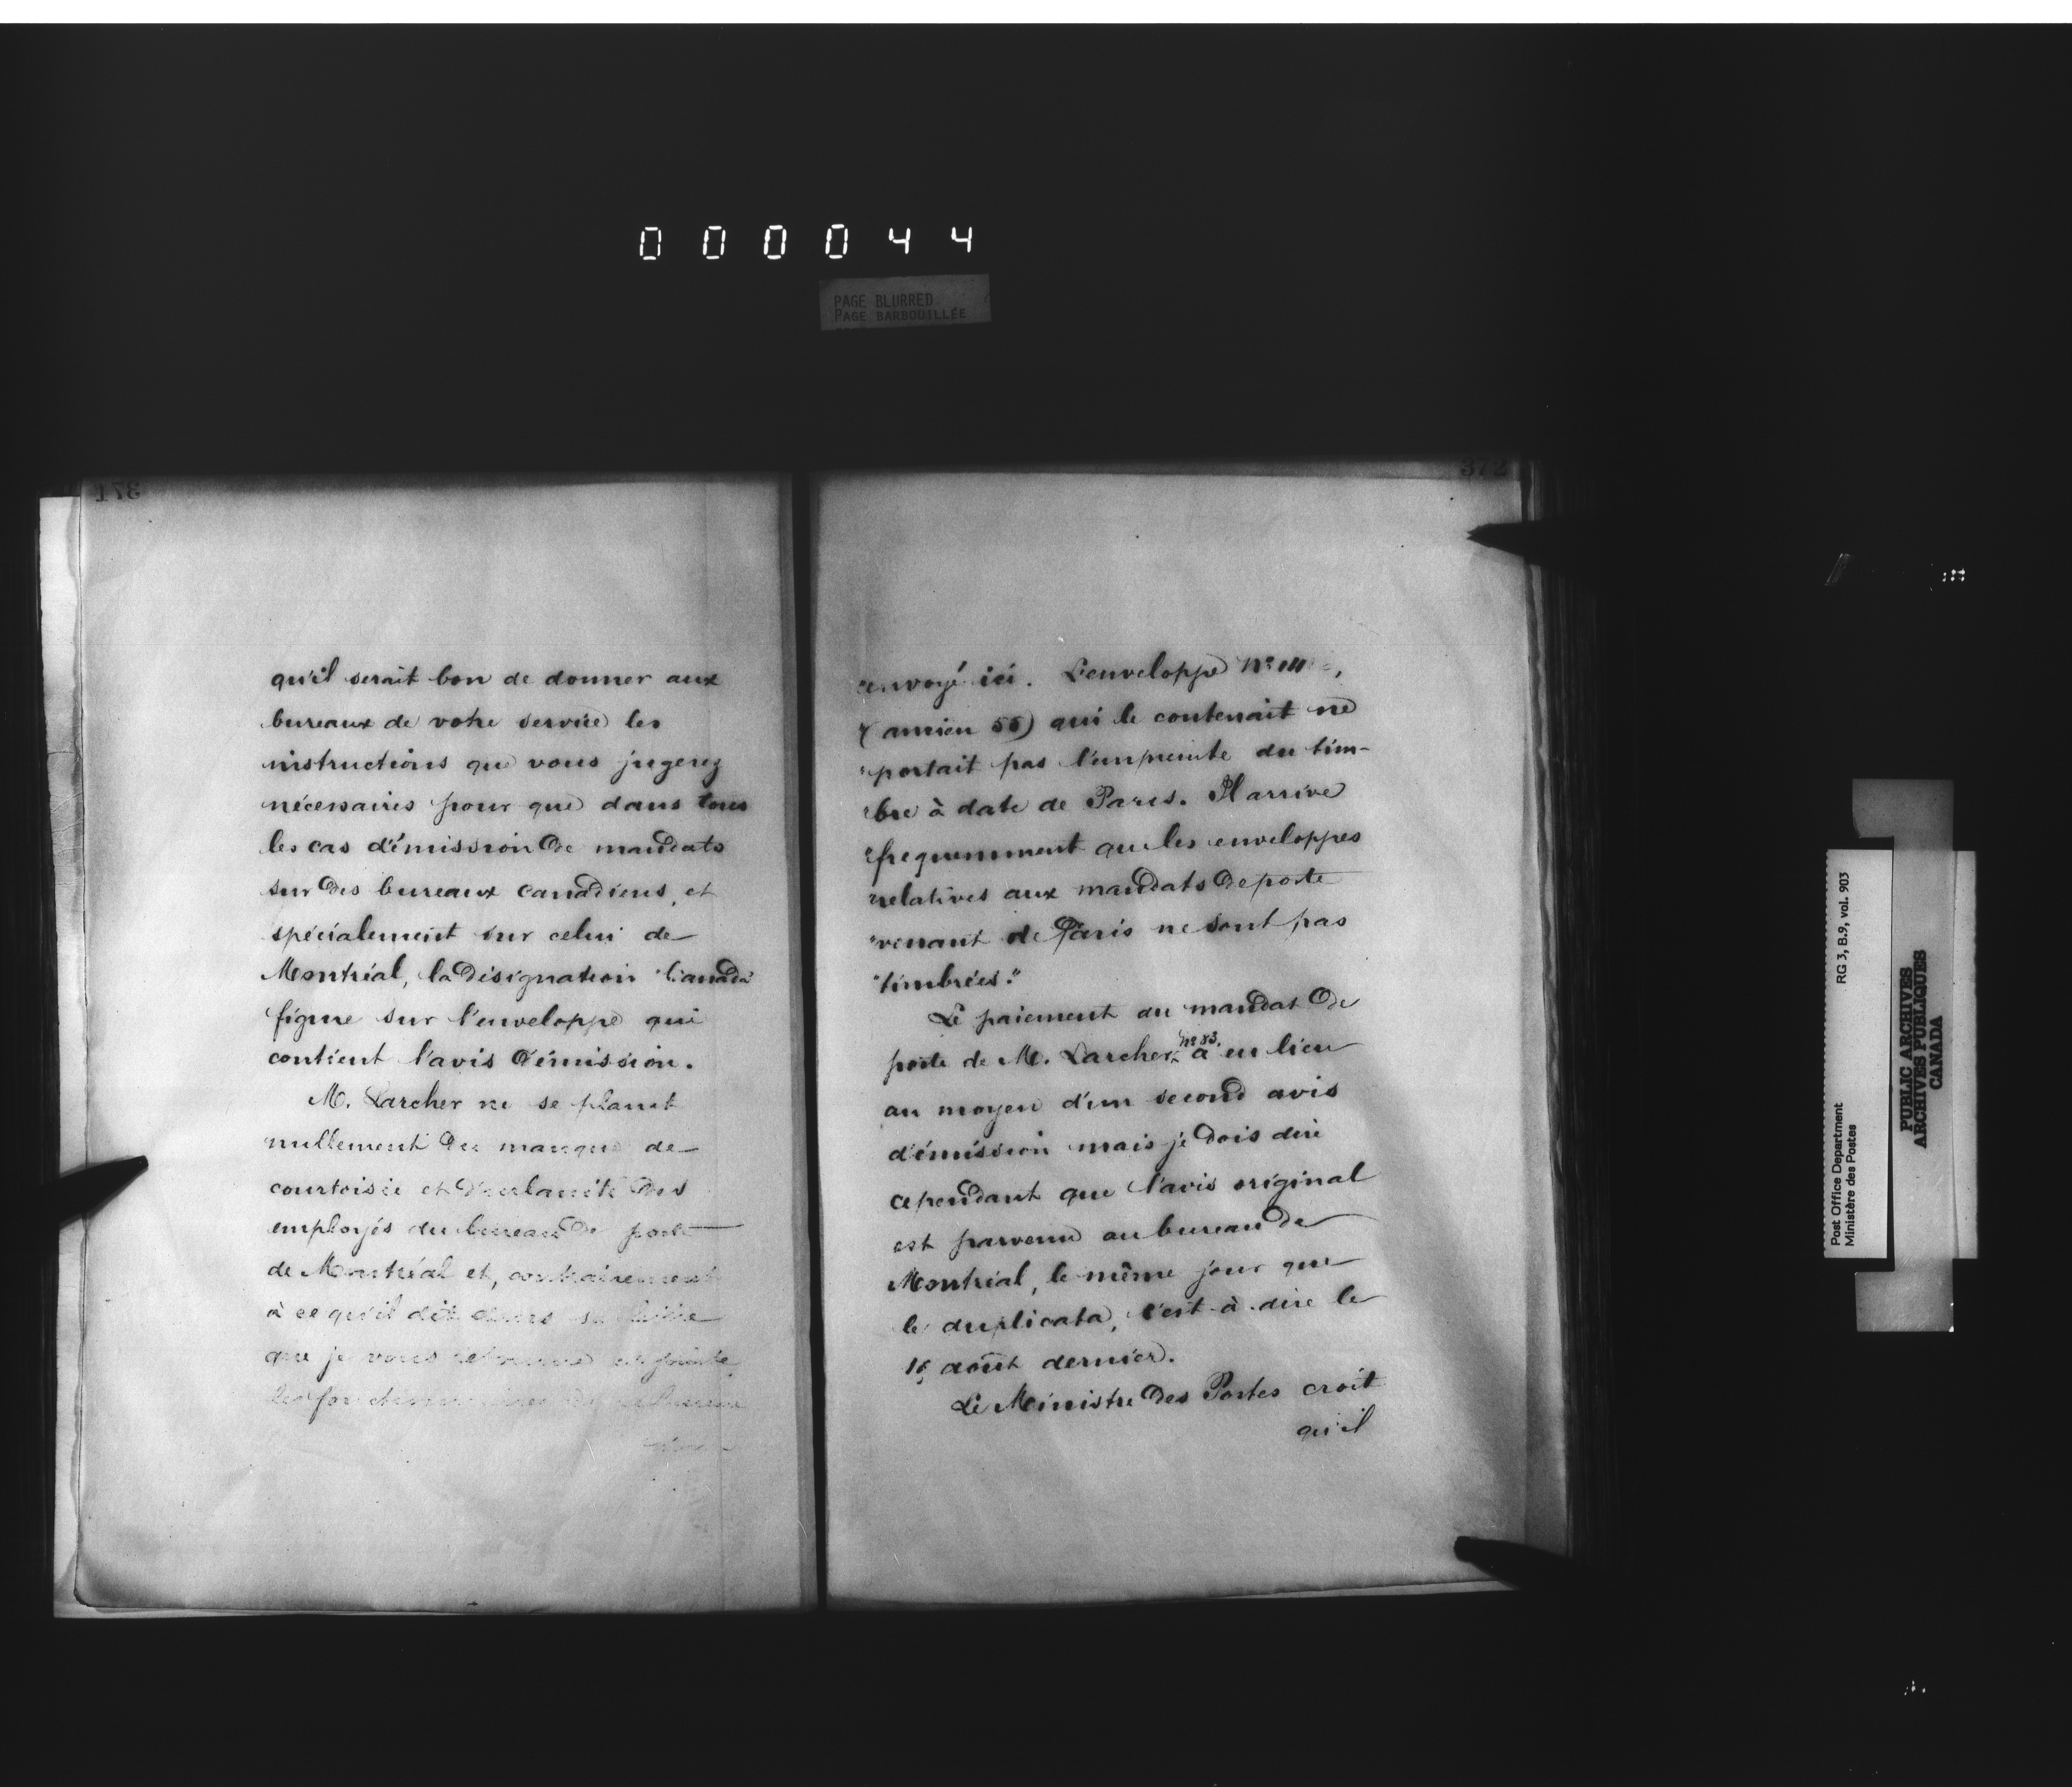 000044
PAGE BLURRED
PAGE BARBOUILLÉE
371
qu'il serait bon de donner aux
bureaux de votre service les
instructions que vous jugerez
nécessaires pour que dans tous
les cas d'émission de mandats
sur des bureaux canadiens, et
spécialement sur celui de
Montréal, la désignation "Canada"
figure sur l'enveloppe qui
contient l'avis d'émission.
M. Larcher ne se plaint
nullement du manque de
courtoisie et d'urbanité des
employés du bureau de poste
de Montréal et, contrairement
à ce qu'il dit dans sa lettre
que je vous retourne ci-jointe,
les fonctionnaires de
372
"envoyé ici. L'enveloppe No
"(ancien 55) qui le contenait ne
"portait pas l'empreinte du tim-
"bre à date de Paris. Il arrive
"frequemment que les enveloppes
"relatives aux mandats de poste
"venant de Paris ne sont pas
"timbrées."
Le paiement du mandat de
poste de M. Larcher, No 83, a eu lieu
au moyen d'un second avis
d'émission mais je dois dire
cependant que l'avis original
est parvenu au bureau de
Montréal, le même jour que
le duplicata, c'est-à-dire le
août dernier.
Le Ministre des Postes croit
qu'il
Post Office Department
Ministère des Postes
RG 3, B.9, vol. 903
PUBLIC ARCHIVES
ARCHIVES PUBLIQUES
CANADA